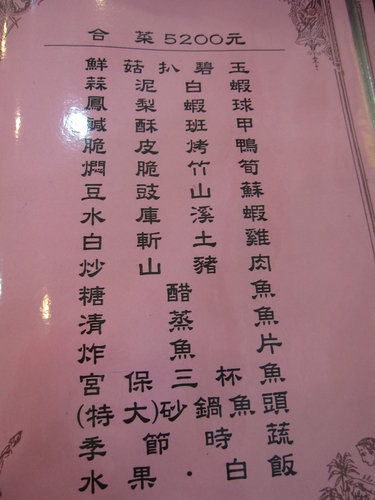 合菜5200元
鮮菇扒碧玉
蒜泥白蝦
鳳梨蝦球
鹹酥班甲
脆皮烤鴨
燜脆竹筍
豆豉山蘇
水庫溪蝦
白斬土雞
炒山豬肉
糖醋魚
清蒸魚
炸魚片
宮保三杯魚
(特大)砂鍋魚頭
季節時蔬
水果．白飯